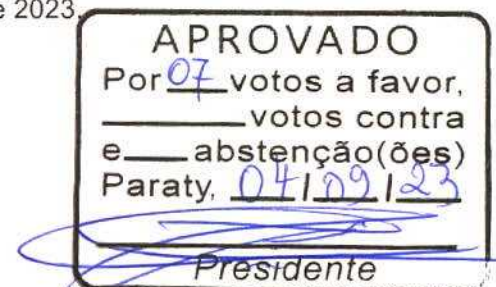 e 2023.
APROVADO
Por 07 votos a favor,
______ votos contra
e___ abstenção(ões)
Paraty, 04/09/23
Presidente